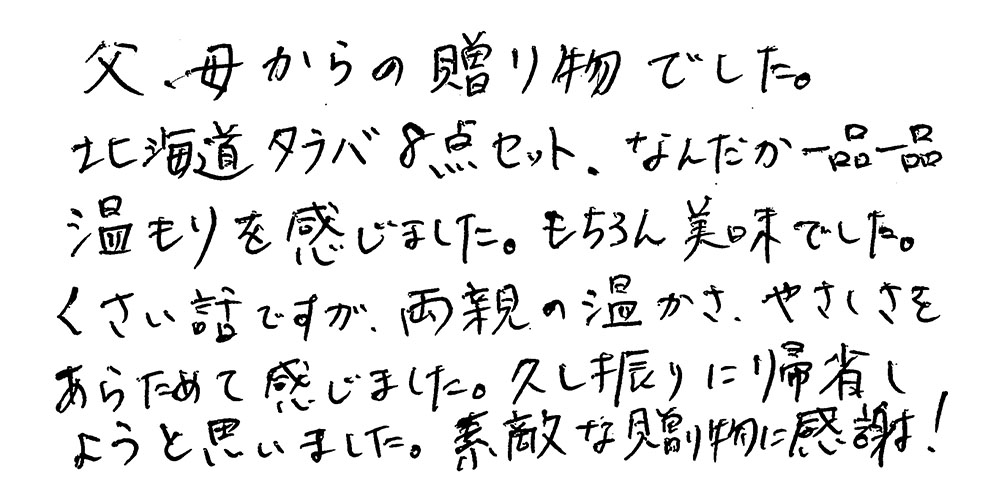 父、母からの贈り物でした。
北海道タラバ8点セット、なんだか一品一品
温もりを感じました。もちろん美味でした。
くさい話ですが、両親の温かさ、やさしさを
あらためて感じました。久し振りに帰省し
ようと思いました。素敵な贈り物に感謝!